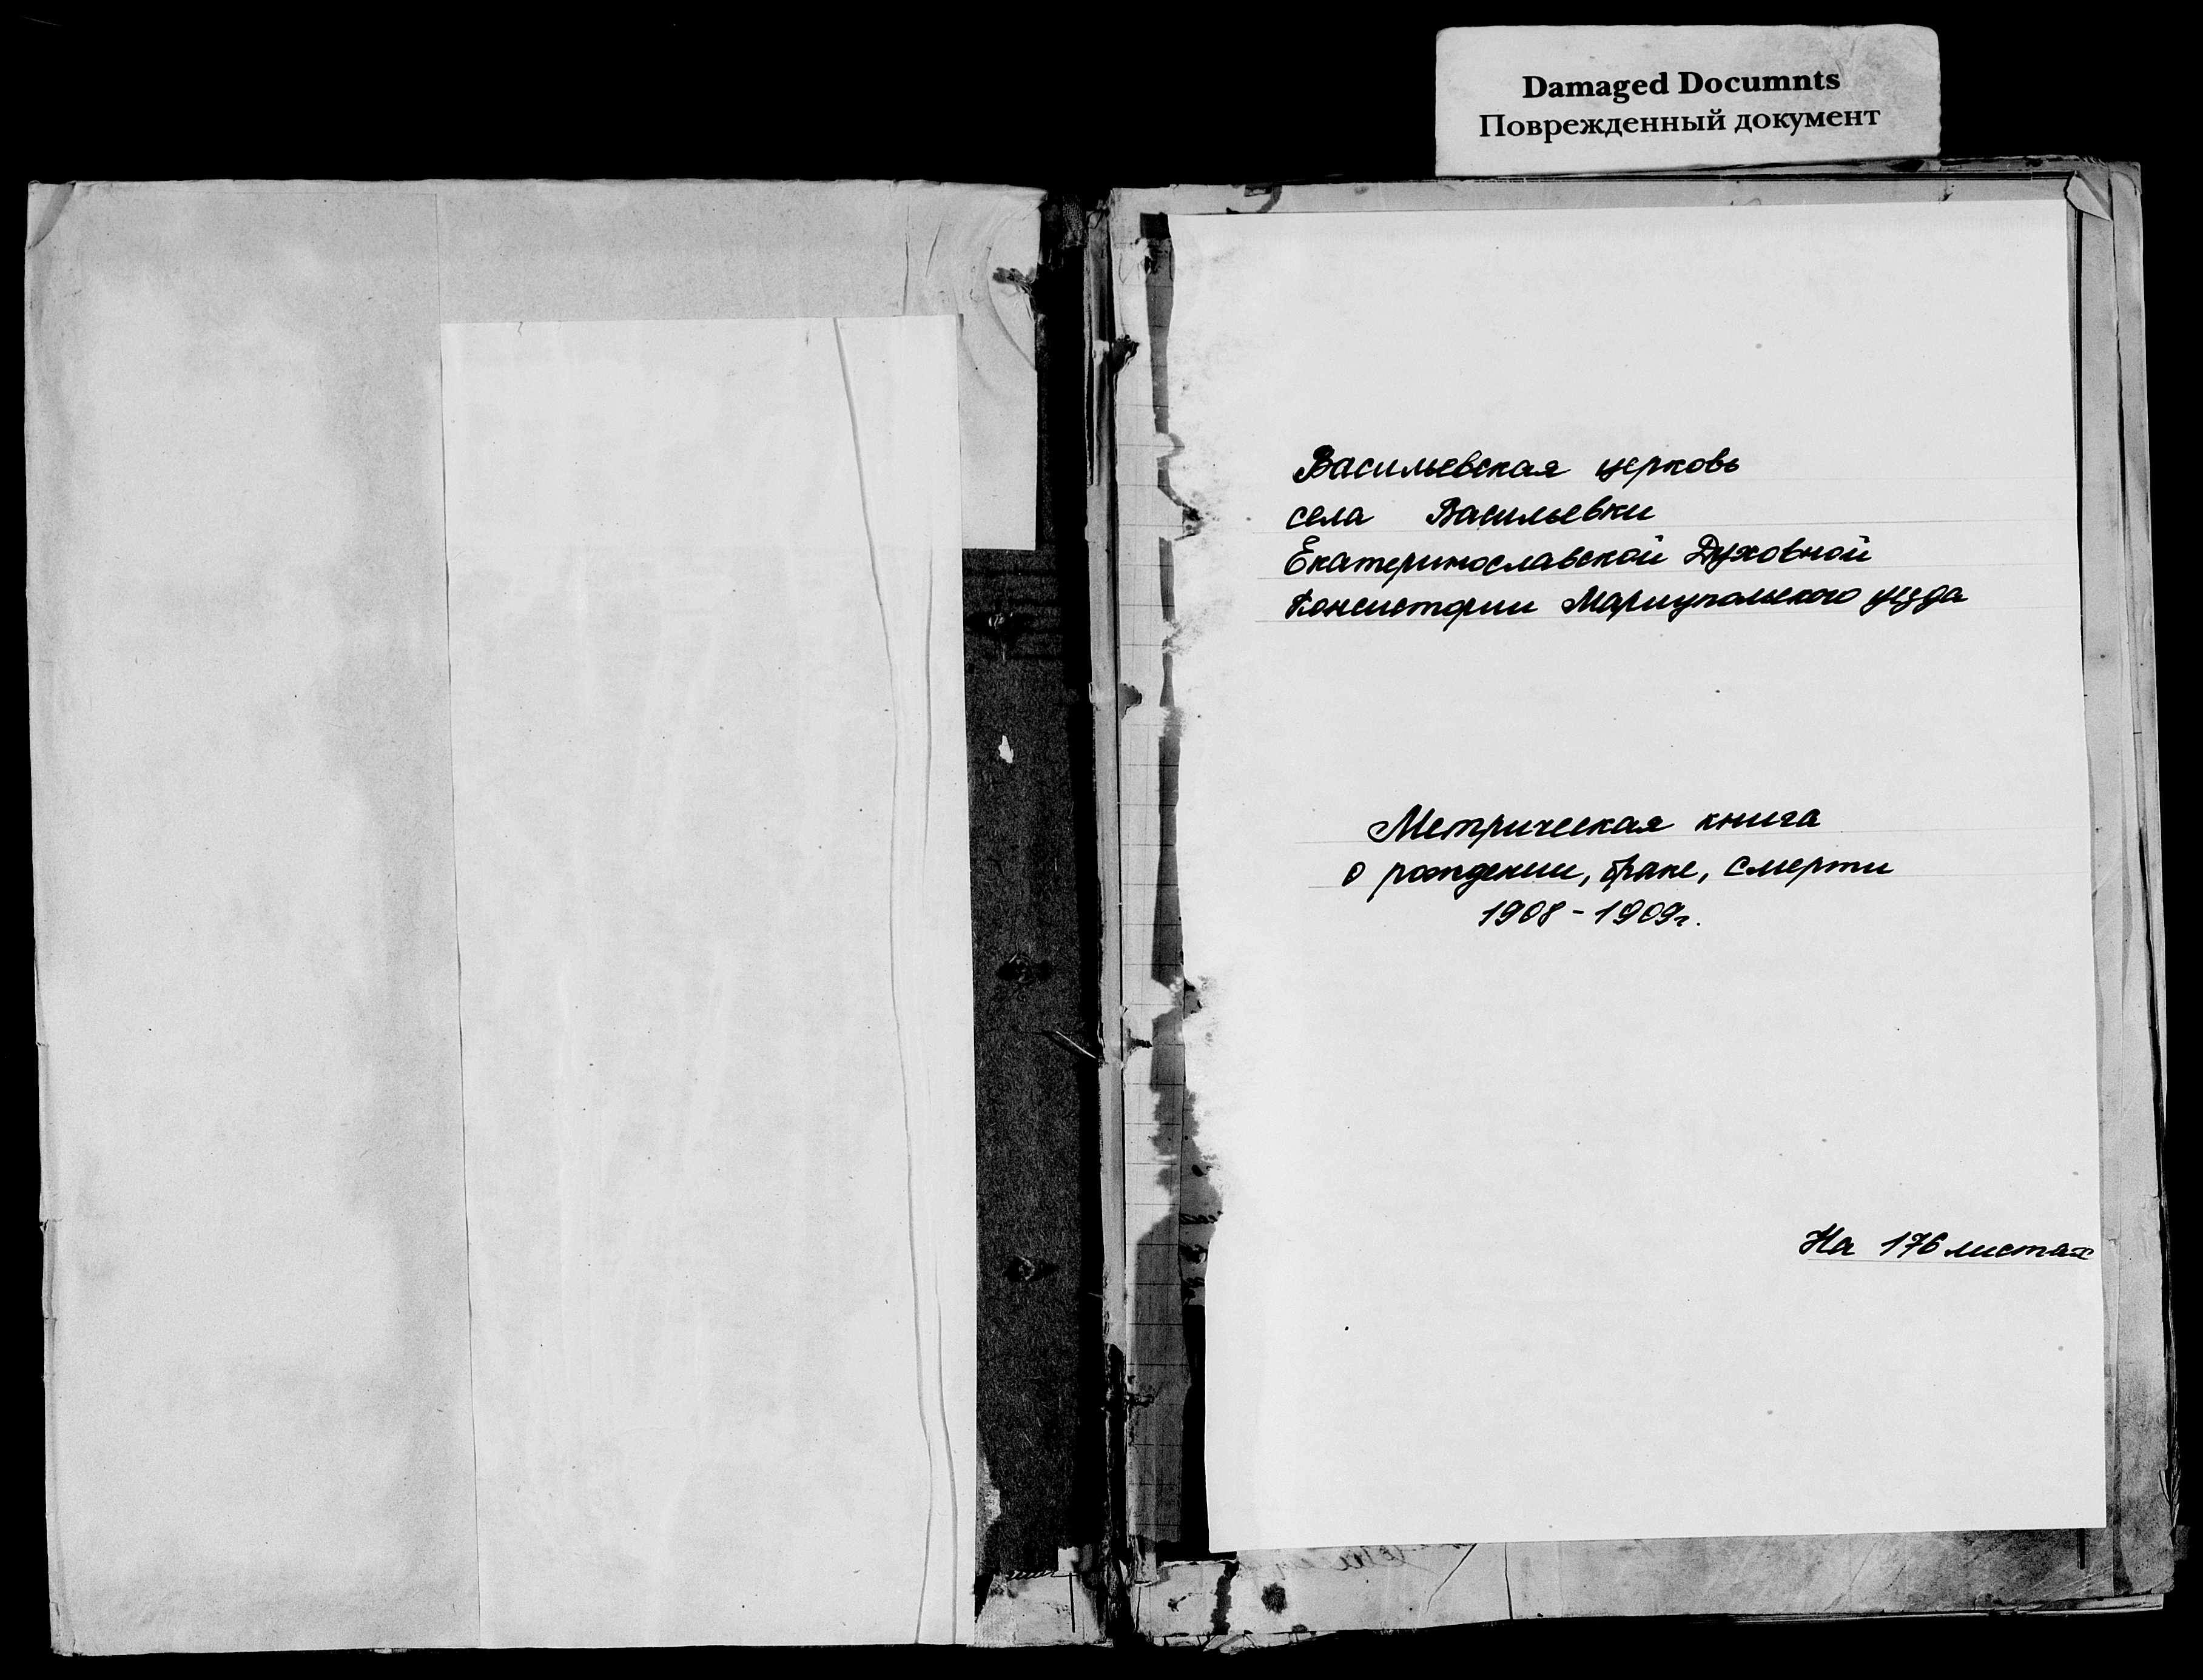 Damaged Documnts
Поврежденный документ
Васильевская церковь
села Васильевки
Екатеринославской Духовной
Консистории Мариупольского уезда
Метрическая книга
о рождении, браке, смерти
1908-1909г.
На 176 листах